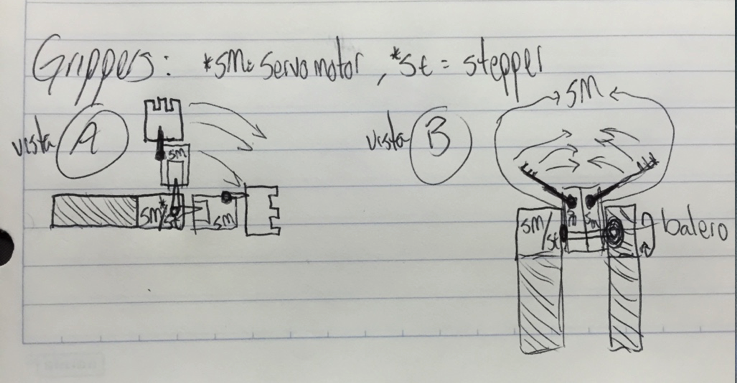 Grippers: *SM= Servomotor, *St = stepper
vista A
SM
SM*/St
SM
vista B
SM
SM/St
SM
balero